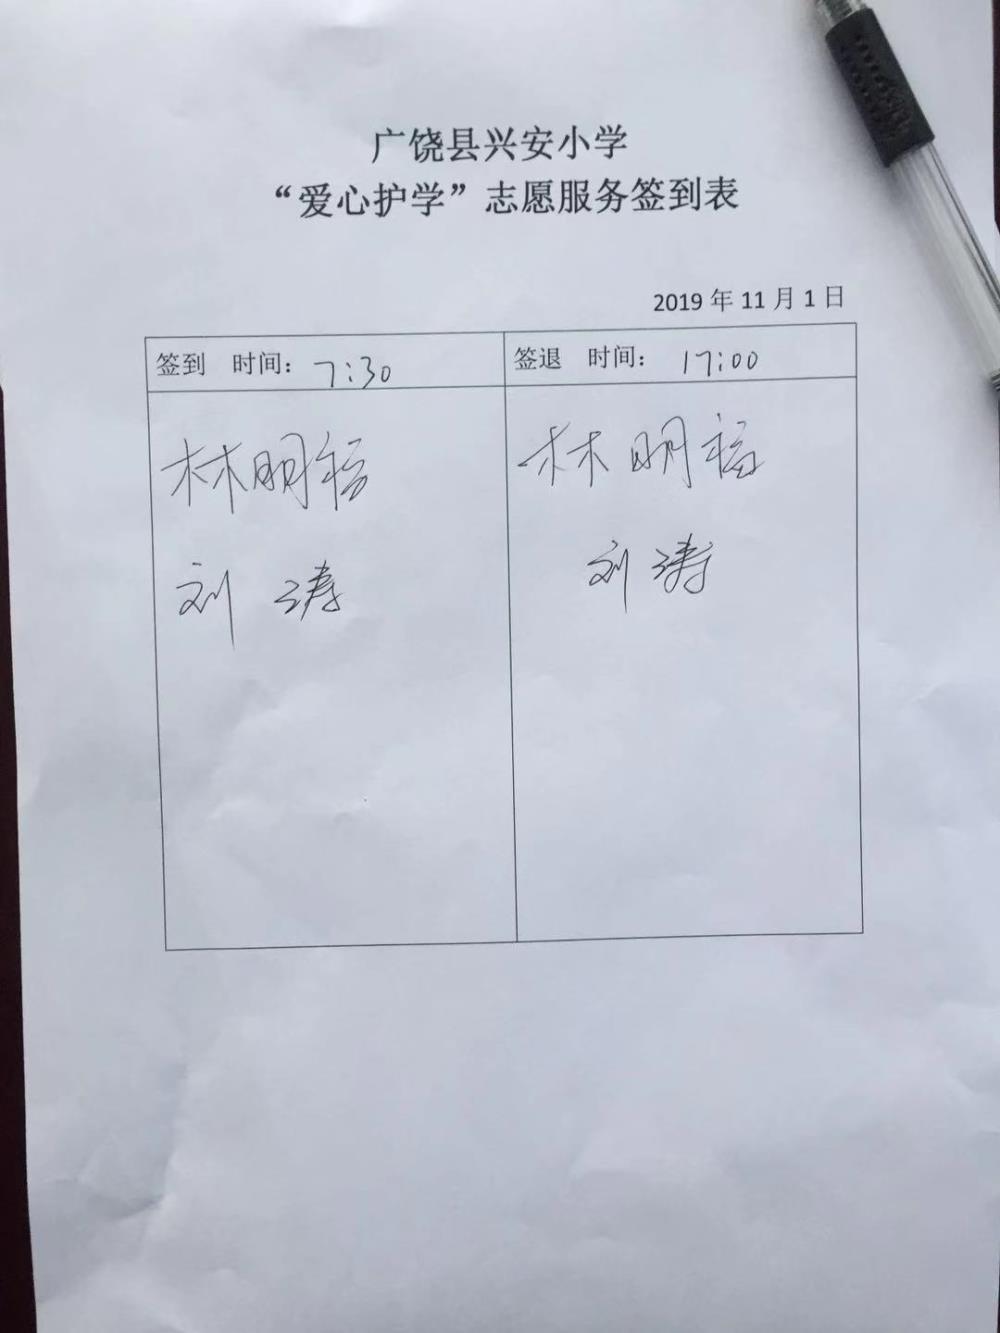 广饶县兴安小学
“爱心护学”志愿服务签到表
2019 年 11 月 1 日
签到 时间：7:30
签退 时间：17:00
林明福
林明福
刘涛
刘涛